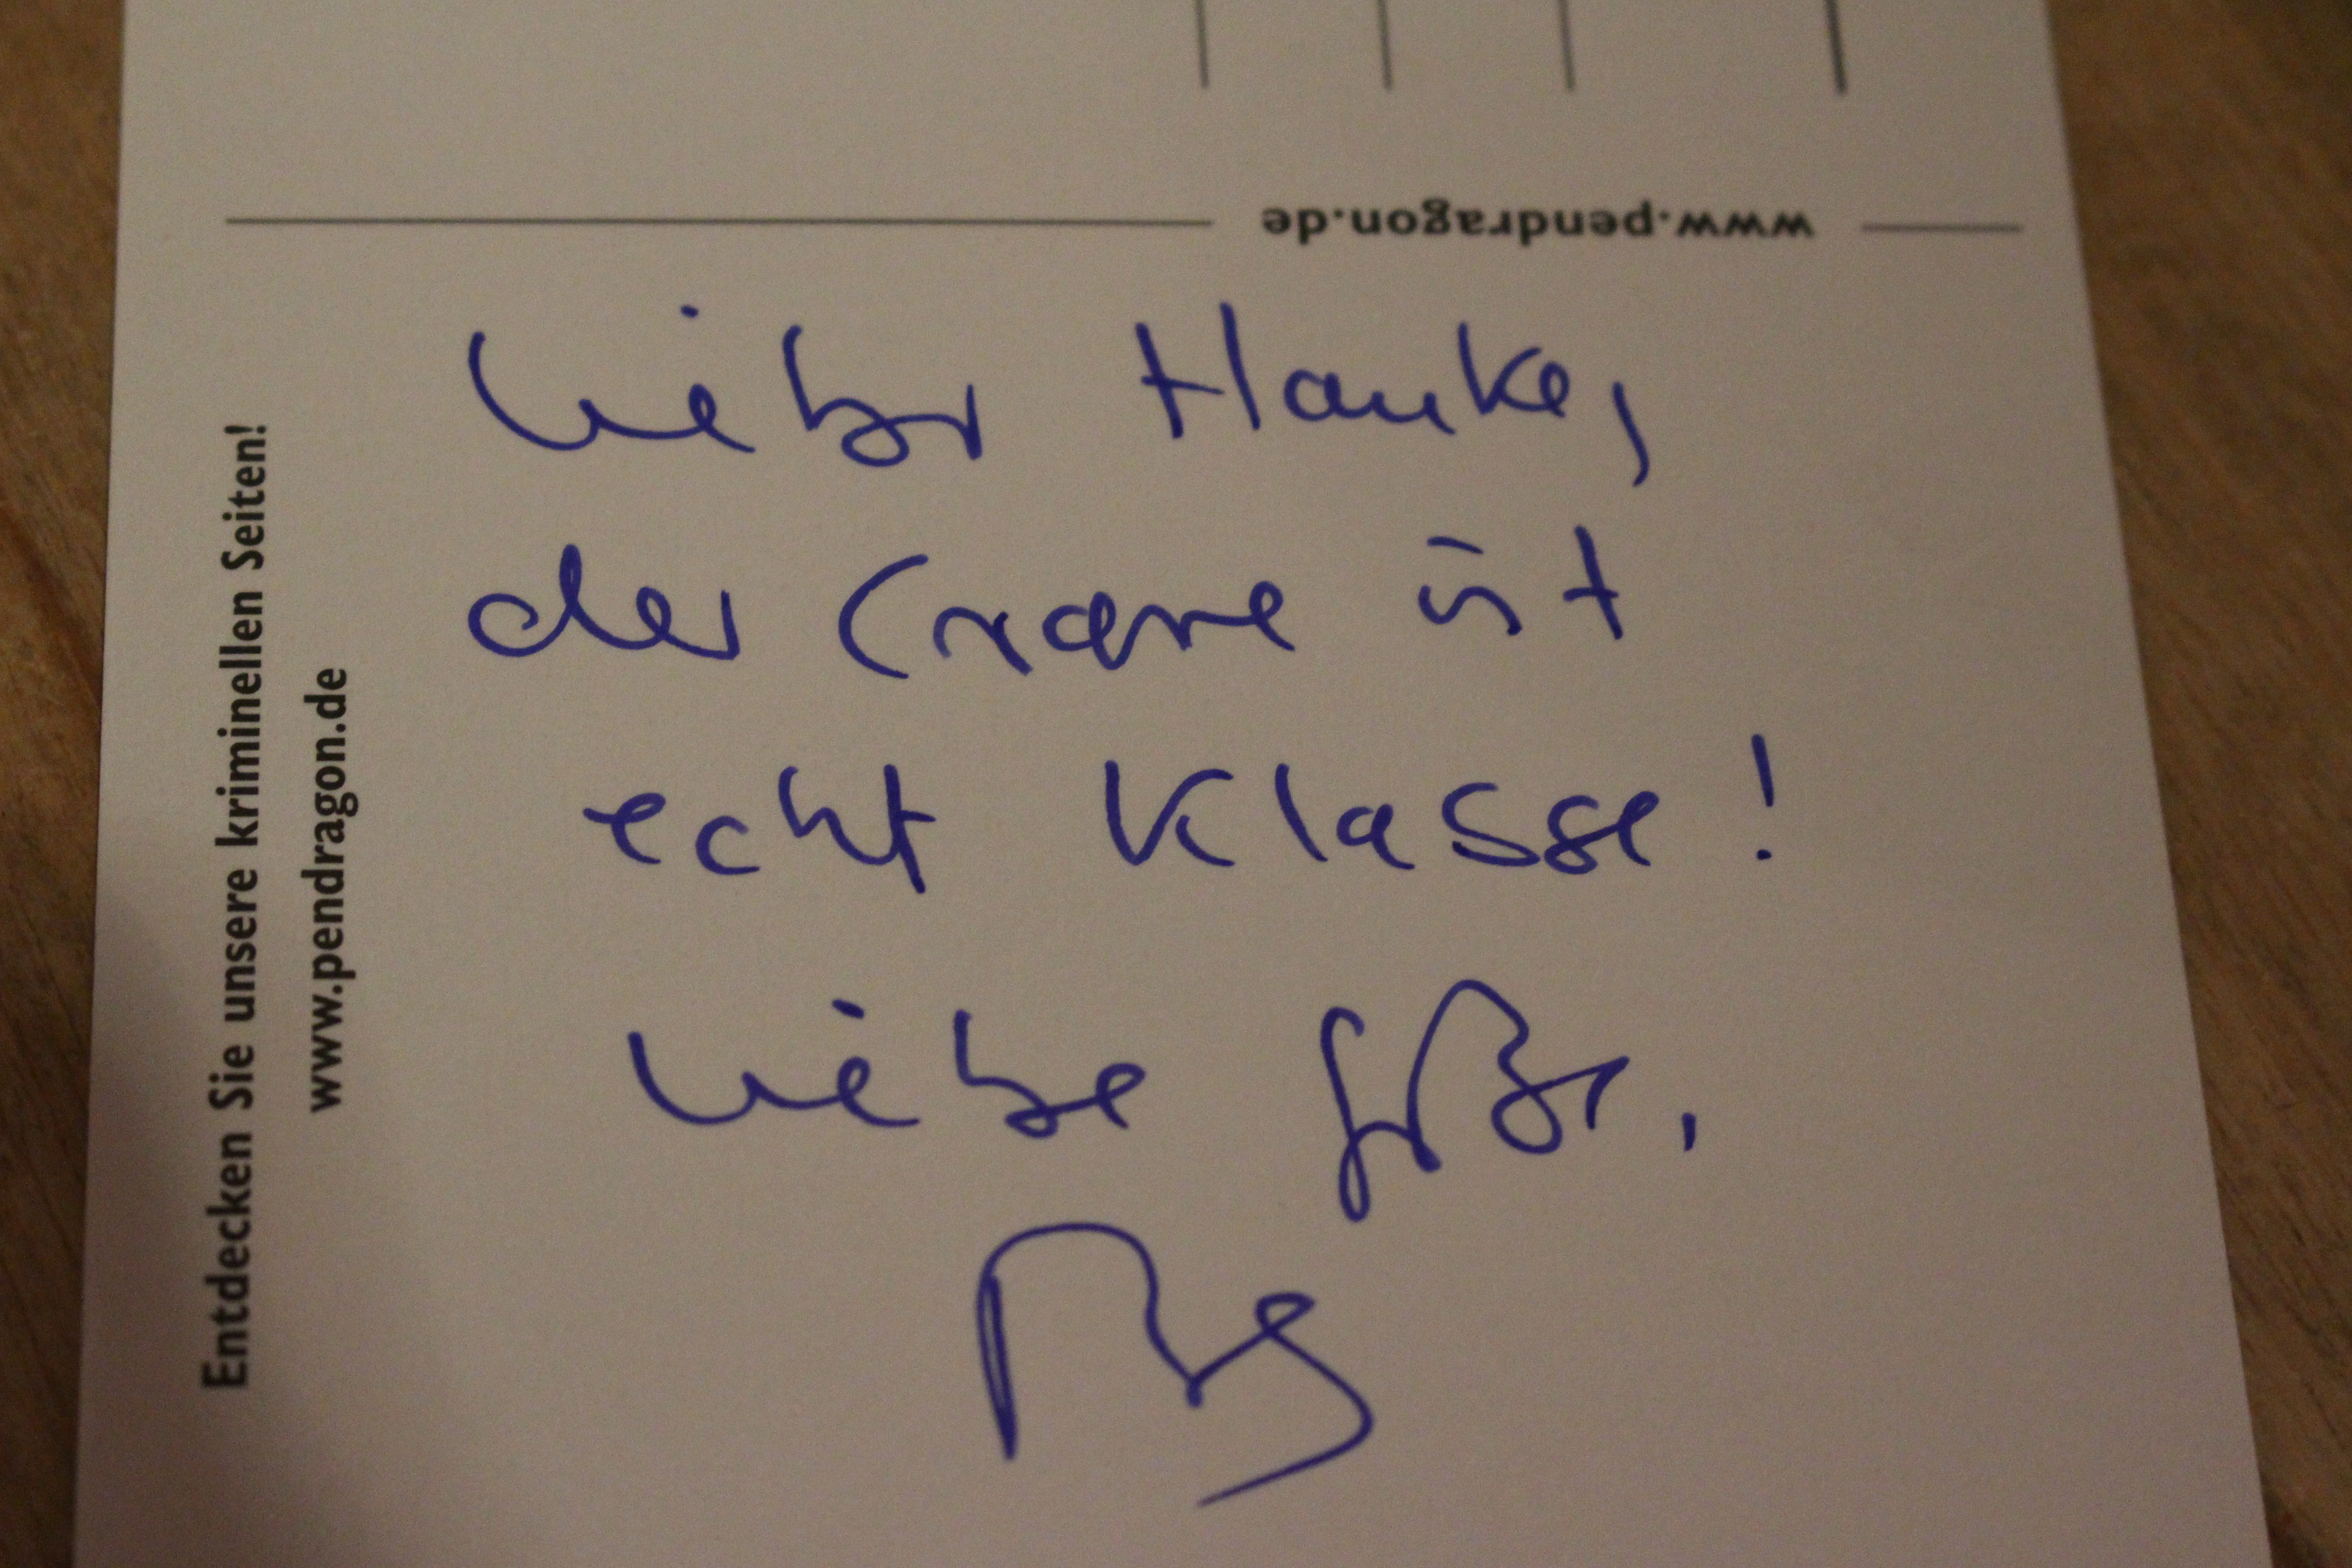 www.pendragon.de
Lieber Hauke,
der Crane ist
echt Klasse!
Liebe Grüße,
Entdecken Sie unsere kriminellen Seiten!
www.pendragon.de